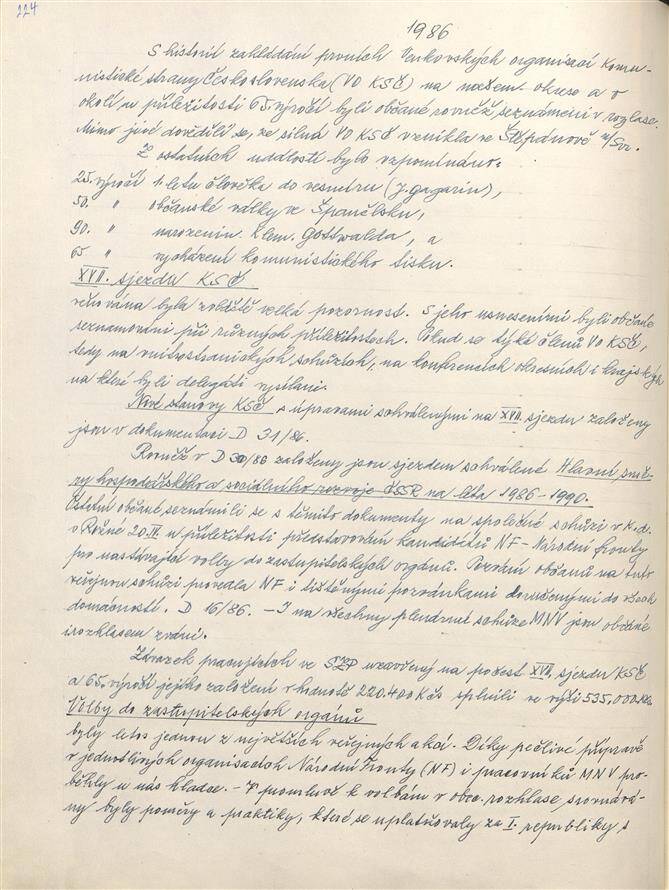 224
1986
S historií zakládání prvních Venkovských organisací Komu-
nistické strany Československa (VO KSČ) na našem okrese a v
okolí u příležitosti 65. výročí byli občané rovněž seznámeni v rozhlase.
Mimo jiné dověděli se, že silná VO KSČ vznikla ve Štěpánově n/Svr.
Z ostatních událostí bylo vzpomínáno:
25. výročí 1. letu člověka do vesmíru (J. Gagarin),
50. " občanské války ve Španělsku,
90. " narozenin Klem. Gottwalda, a
65 " vycházení komunistického tisku.
XVII. sjezdu KSČ
věnována byla zvláště velká pozornost. S jeho usneseními byli občané
seznamováni při různých příležitostech. Pokud se týká členů VO KSČ,
tedy na vnitrostranických schůzích, na konferencích okresních i krajských
na které byli delegáti vysíláni.
Nové stanovy KSČ s úpravami schválenými na XVII. sjezdu založeny
jsou v dokumentaci D 31/86.
Rovněž v D 30/86 založeny jsou sjezdem schválené Hlavní smě-
ry hospodářského a sociálního rozvoje ČSSR na léta 1986-1990.
Ostatní občané seznámili se s těmito dokumenty na společné schůzi v K.d.
v Rožné 20.IV. u příležitosti představování kandidátů NF - Národní fronty
pro nastávající volby do zastupitelských orgánů. Pozvání občanů na tuto
veřejnou schůzi provedla NF i tištěnými pozvánkami doručenými do všech
domácností. D 16/86. - I na všechny plenární schůze MNV jsou občané
i rozhlasem zváni.
Závazek pracujících ve uzavřený na počest XVII. sjezdu KSČ
a 65. výročí jejího založení v hodnotě 220.400 Kčs splnili ve výši 535.000 Kčs
Volby do zastupitelských orgánů
byly letos jednou z největších veřejných akcí. Díky pečlivé přípravě
v jednotlivých organisacích Národní fronty (NF) i pracovníků MNV pro-
běhly u nás hladce. - V promluvě k volbám v obec. rozhlase srovnává-
ny byly poměry a praktiky, které se uplatňovaly za I. republiky, s